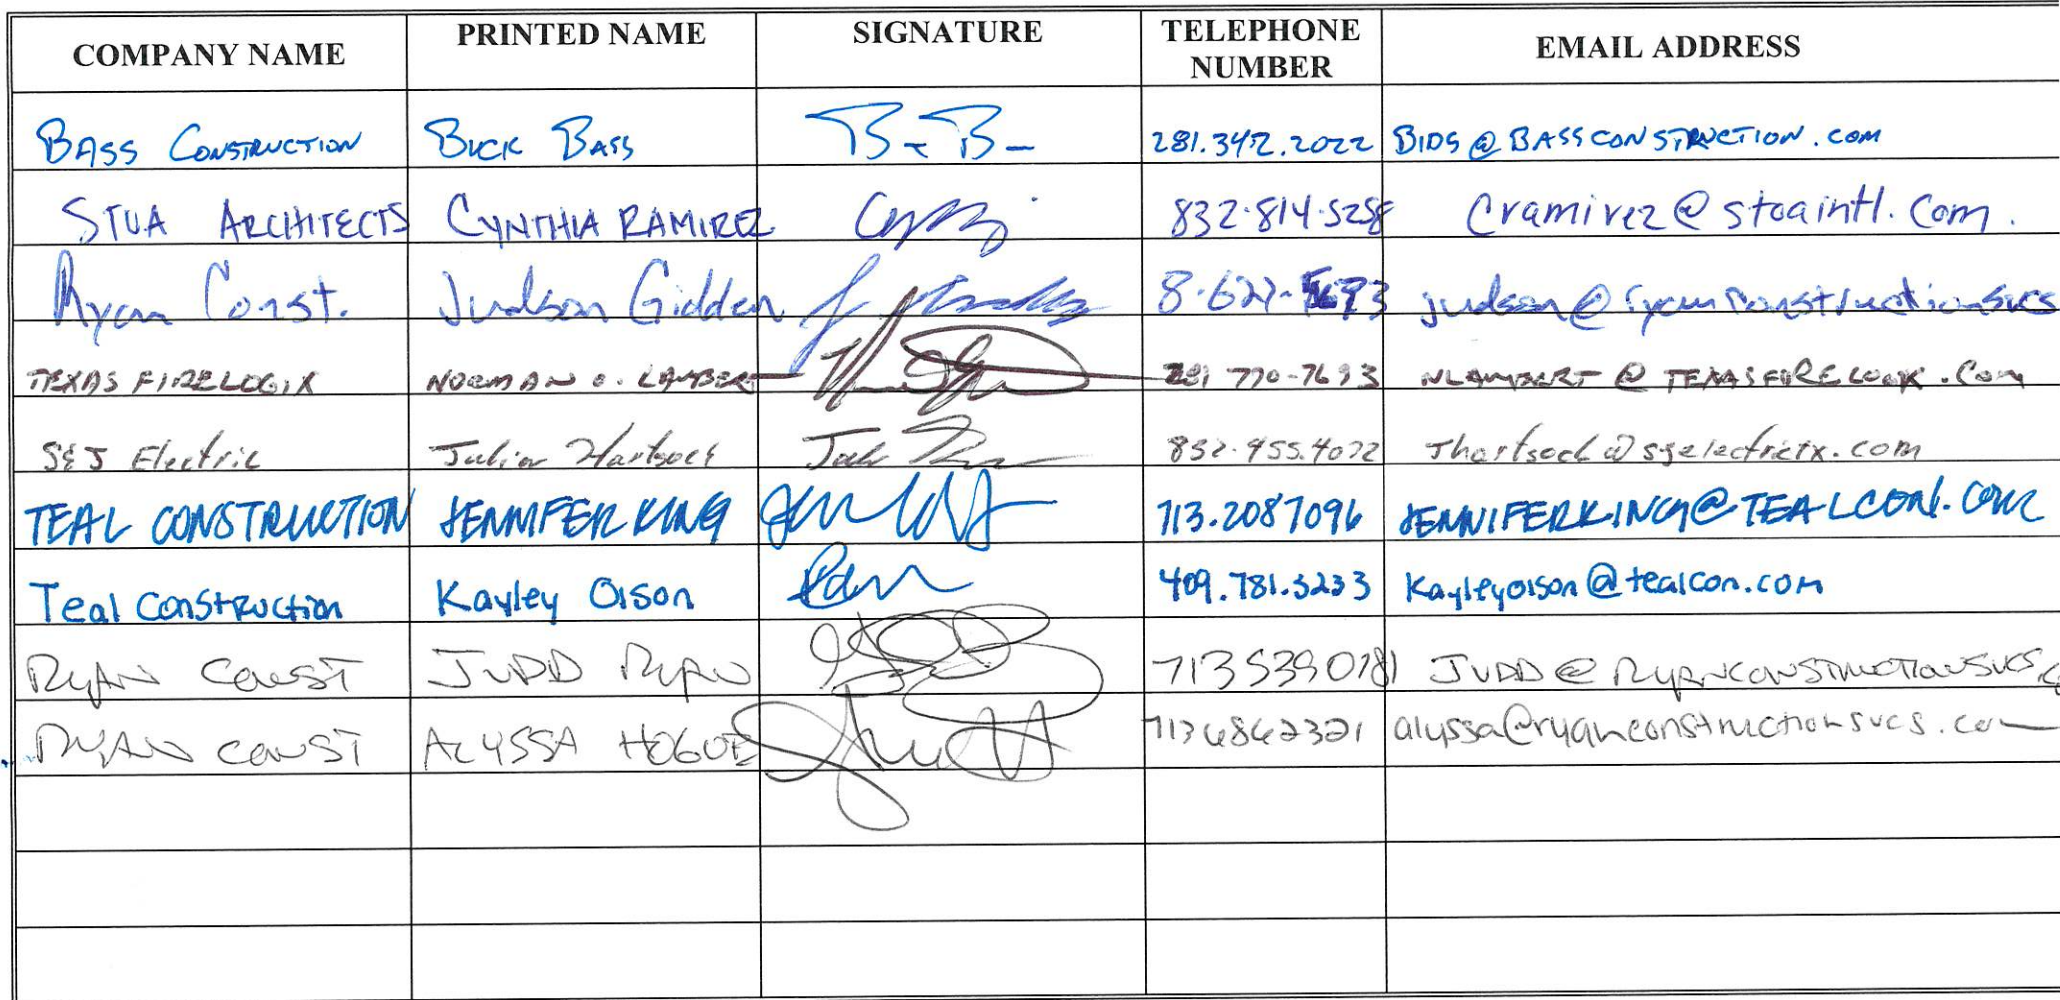 COMPANY NAME PRINTED NAME SIGNATURE TELEPHONE NUMBER EMAIL ADDRESS
BASS CONSTRUCTION BUCK BASS 281.342.2022 BIDS@BASSCONSTRUCTION.COM
STOA ARCHITECTS CYNTHIA RAMIREZ 832-814-5258 cramirez@stoaintl.com.
Ryan Const. Judson Gidden judson@ryanconstructionsvcs
TEXAS FIRELOGIX NORMAN O. LAMBERT 281 770-7693 NLAMBERT@
S&J Electric Julian Hartsock 832.955.4072 Jhartsock@sjelectrictx.com
TEAL CONSTRUCTION JENNIFER KING 713.2087096 JENNIFERKING@TEALCON.COM
Teal Construction Kayley Olson 409.781.3233 Kayleyolson@tealcon.com
RYAN CONST JUDD RYAN 7135390781 JUDD@RYANCONSTRUCTIONSVCS.C
RYAN CONST ALYSSA HOGUE 7136862321 alyssa@ryanconstructionsvcs.com